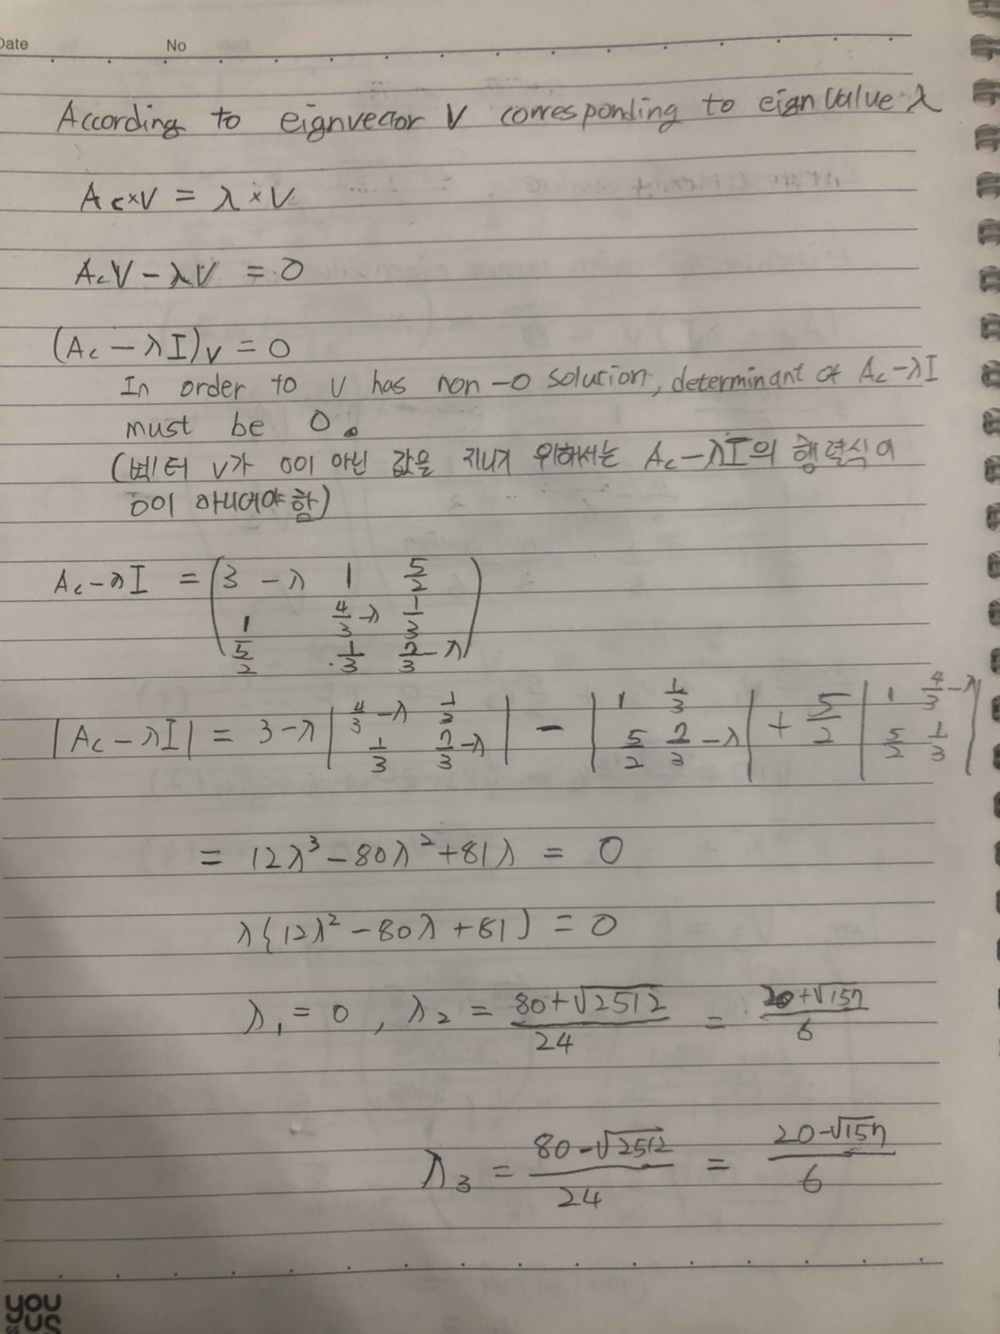 Date No
According to eignvector V corresponding to eign value λ
Ac×V = λ×V
AcV - λV = 0
(Ac - λI)v = 0
In order to v has non-0 solution, determinant of Ac-λI
must be 0.
(벡터 v가 0이 아닌 값을 지니기 위해서는 Ac-λI의 행렬식이
0이 아니어야 함)
Ac-λI = (3 - λ 1 5/2
1 4/3-λ 1/3
5/2 1/3 7/3-λ)
|Ac-λI| = 3-λ |4/3-λ 1/3 1/3 7/3-λ| - |1 1/3 5/2 7/3-λ| + 5/2 |1 4/3-λ 5/2 1/3|
= 12λ³-80λ²+81λ = 0
λ{12λ²-80λ+81) = 0
λ₁ = 0 , λ₂ = 80+√2512/24 = 20+√157/6
λ₃ = 80-√2512/24 = 20-√157/6
you
us